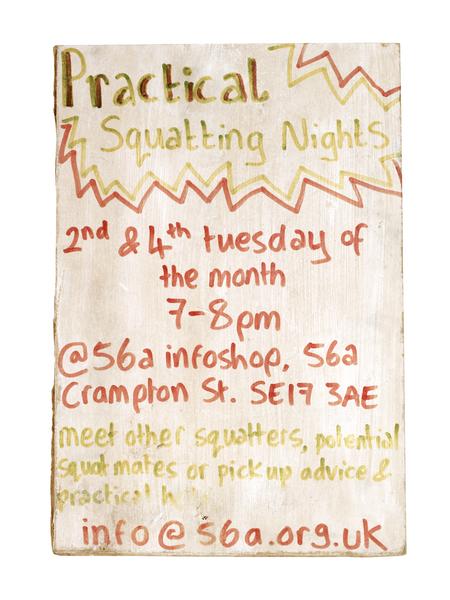 Practical
Squatting Nights
2nd & 4th tuesday of
the month
7-8pm
@56a infoshop, 56a
Crampton St. SE17 3AE
meet other squatters, potential
squat mates or pick up advice &
practical
info@56a.org.uk